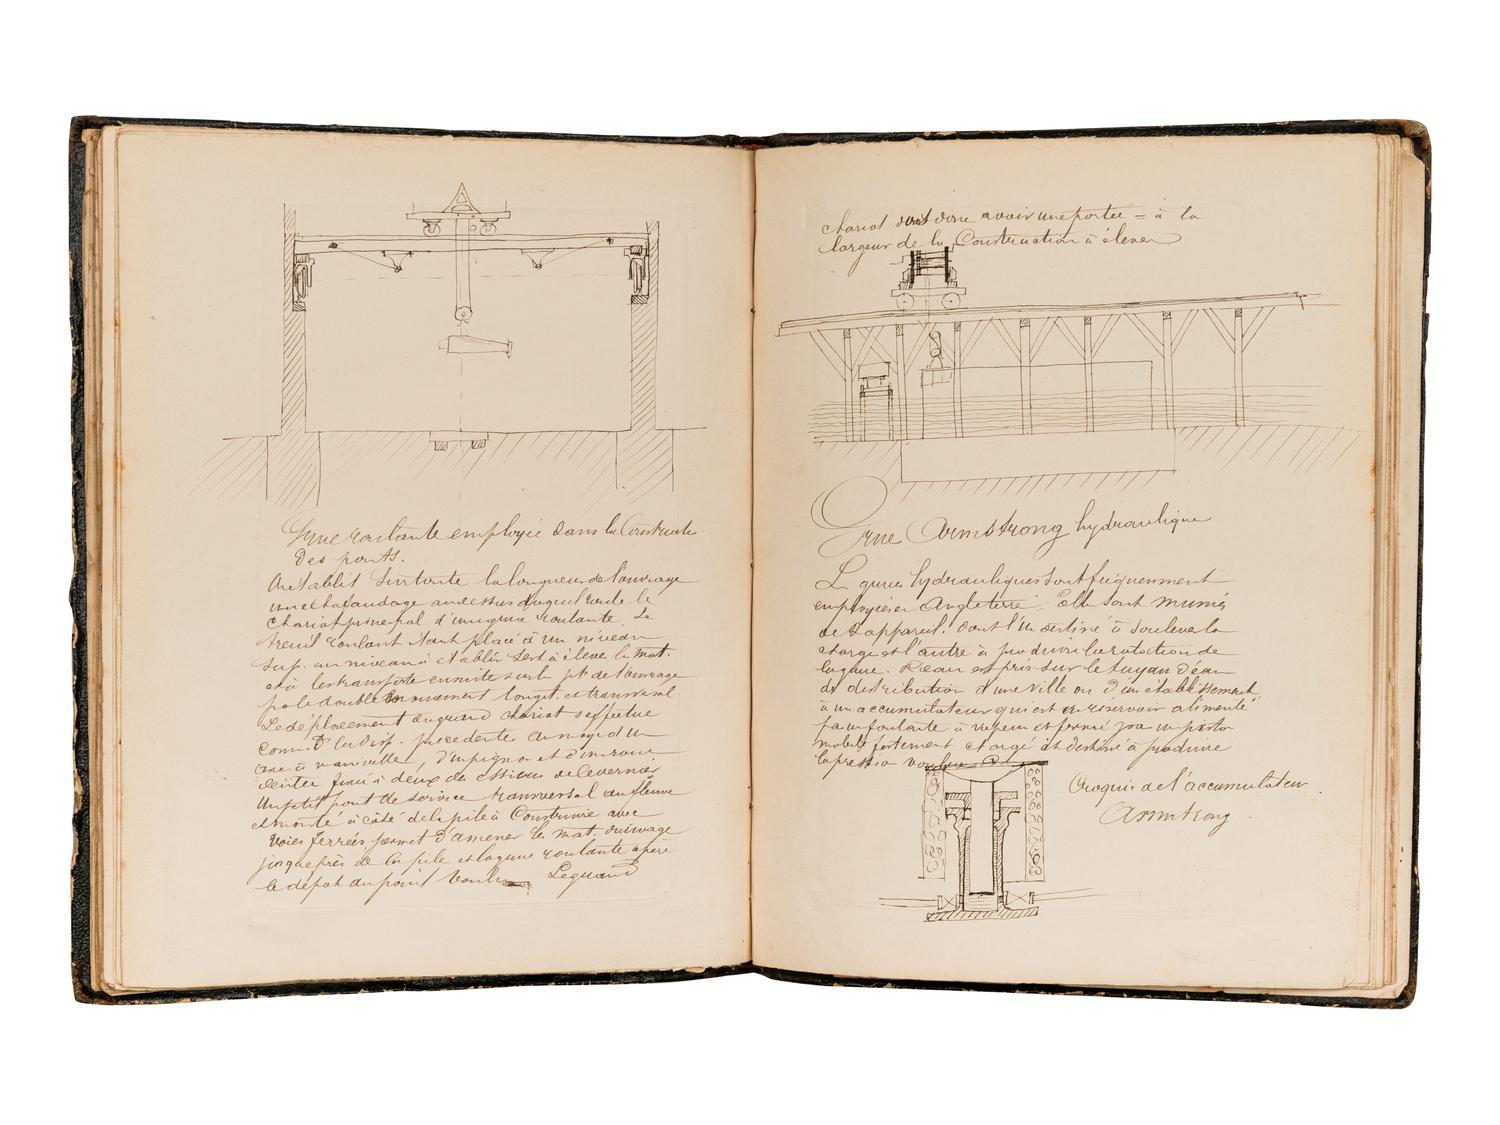 Grue roulante employée dans la Construction
Des ponts.
On établit sur toute la longueur de l'ouvrage
un échafaudage au dessus duquel roule le
chariot principal d'une grue roulante. Le
treuil roulant étant placé à un niveau
sup. au niveau à établir sert à élever le mat.
et à les transporter ensuite sur le pt de l'ouvrage
par le double mouvement longit. et transversal.
Le déplacement du grand chariot s'effectue
comme Ds la disp. précédente au moyen d'un
axe à manivelles, d'un pignon et d'une roue
dentée fixée à deux des essieux de ce dernier
Un petit pont de service transversal au fleuve
est monté à côté de la pile à Construire avec
voies ferrées permet d'amener les mat. du rivage
jusque près de la pile et la grue roulante opère
le dépôt au point voulu Le grand
chariot doit donc avoir une portée = à la
largeur de la Construction à élever
Grue Armstrong hydraulique
Les grues hydrauliques sont fréquemment
employées en Angleterre. Elles sont munies
de 2 appareils. Dont l'un destiné à soulever la
charge et l'autre à produire la rotation de
la grue. L'eau est pris sur le tuyau d'eau
de distribution d'une ville ou d'un établissement
à un accumulateur qui est un réservoir alimenté
par foulante à vapeur et formé par un piston
mobile fortement chargé et destiné à produire
la pression voulue
Croquis de l'accumulateur
Armstrong